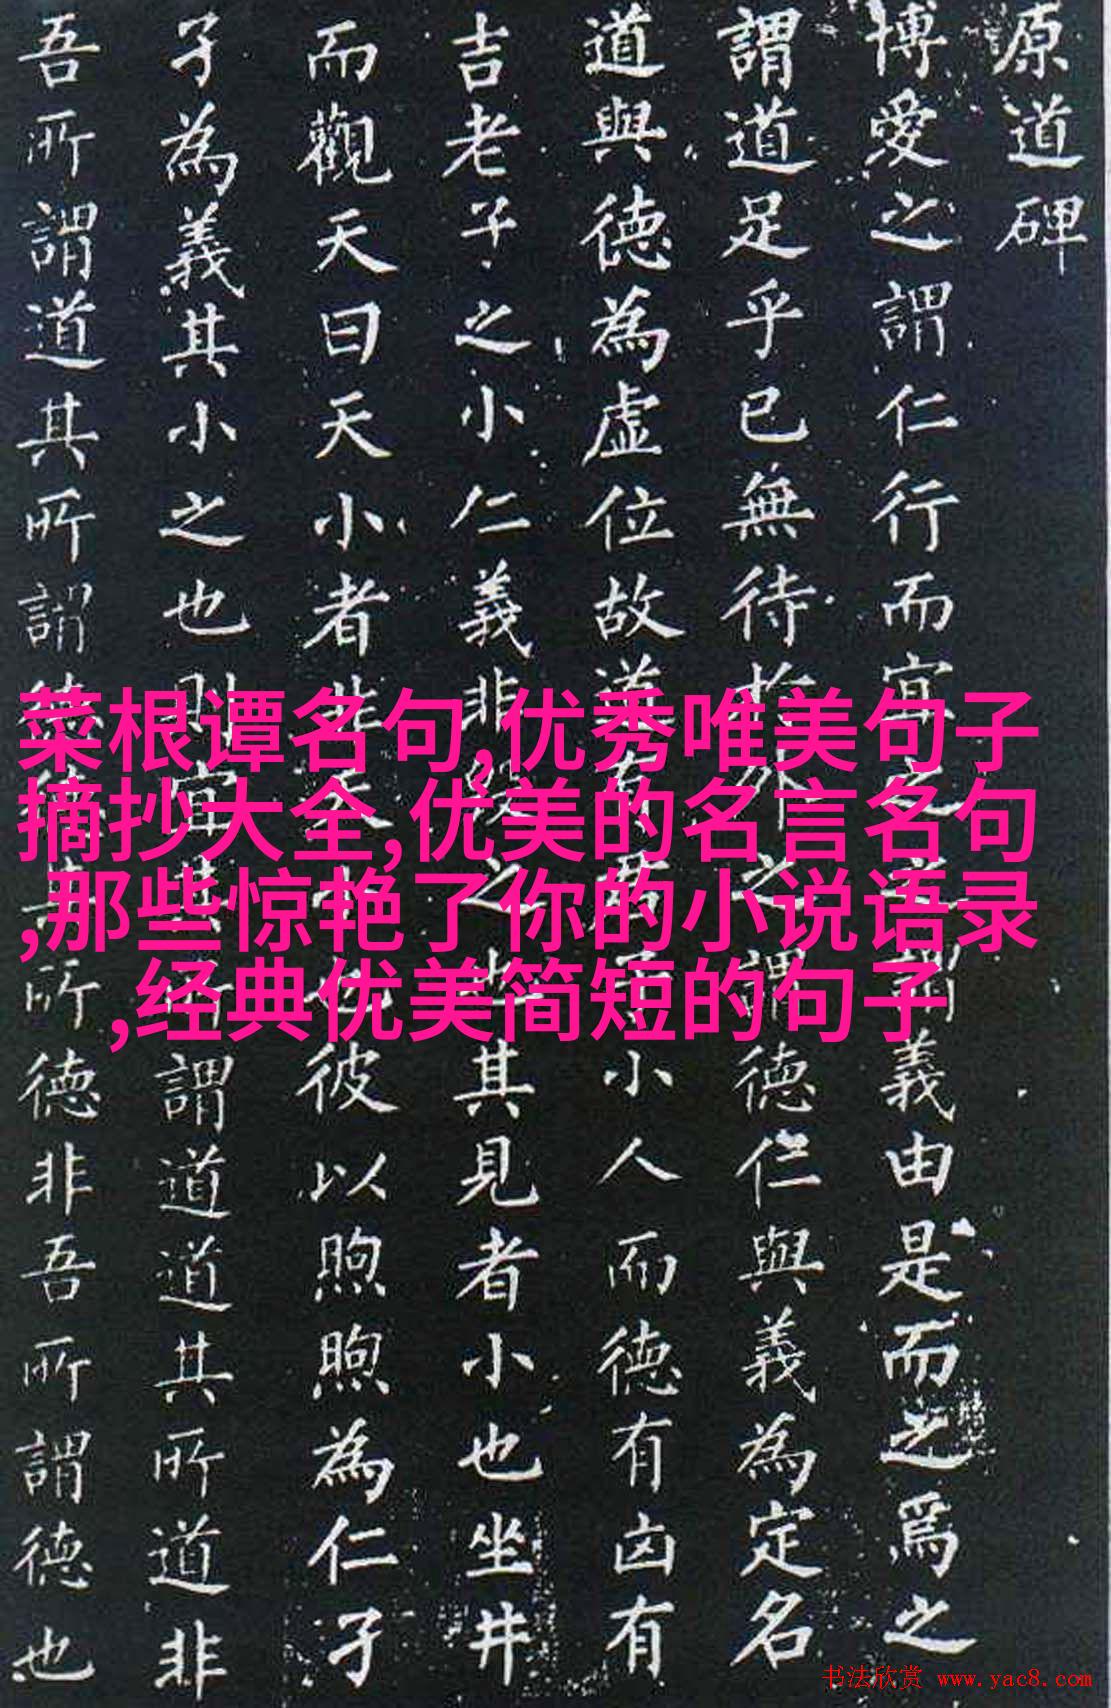 原道碑
博愛之謂仁行而宜之之謂義由是而之爲之
謂道足乎已無待於外之謂德仁與義為定名
道與德為虛位故道有君子小人而德有凶有
吉老子之小仁義非毀之也其見者小也坐井
而觀天曰天小者非天小也彼以煦煦為仁孑
孑為義其小之也則宜其所謂道道其所道非
吾所謂道其所謂德德其所德非吾所謂德也
菜根谭名句,优秀唯美句子
摘抄大全,优美的名言名句
,那些惊艳了你的小说语录
,经典优美简短的句子
书法欣赏 www.yac8.com